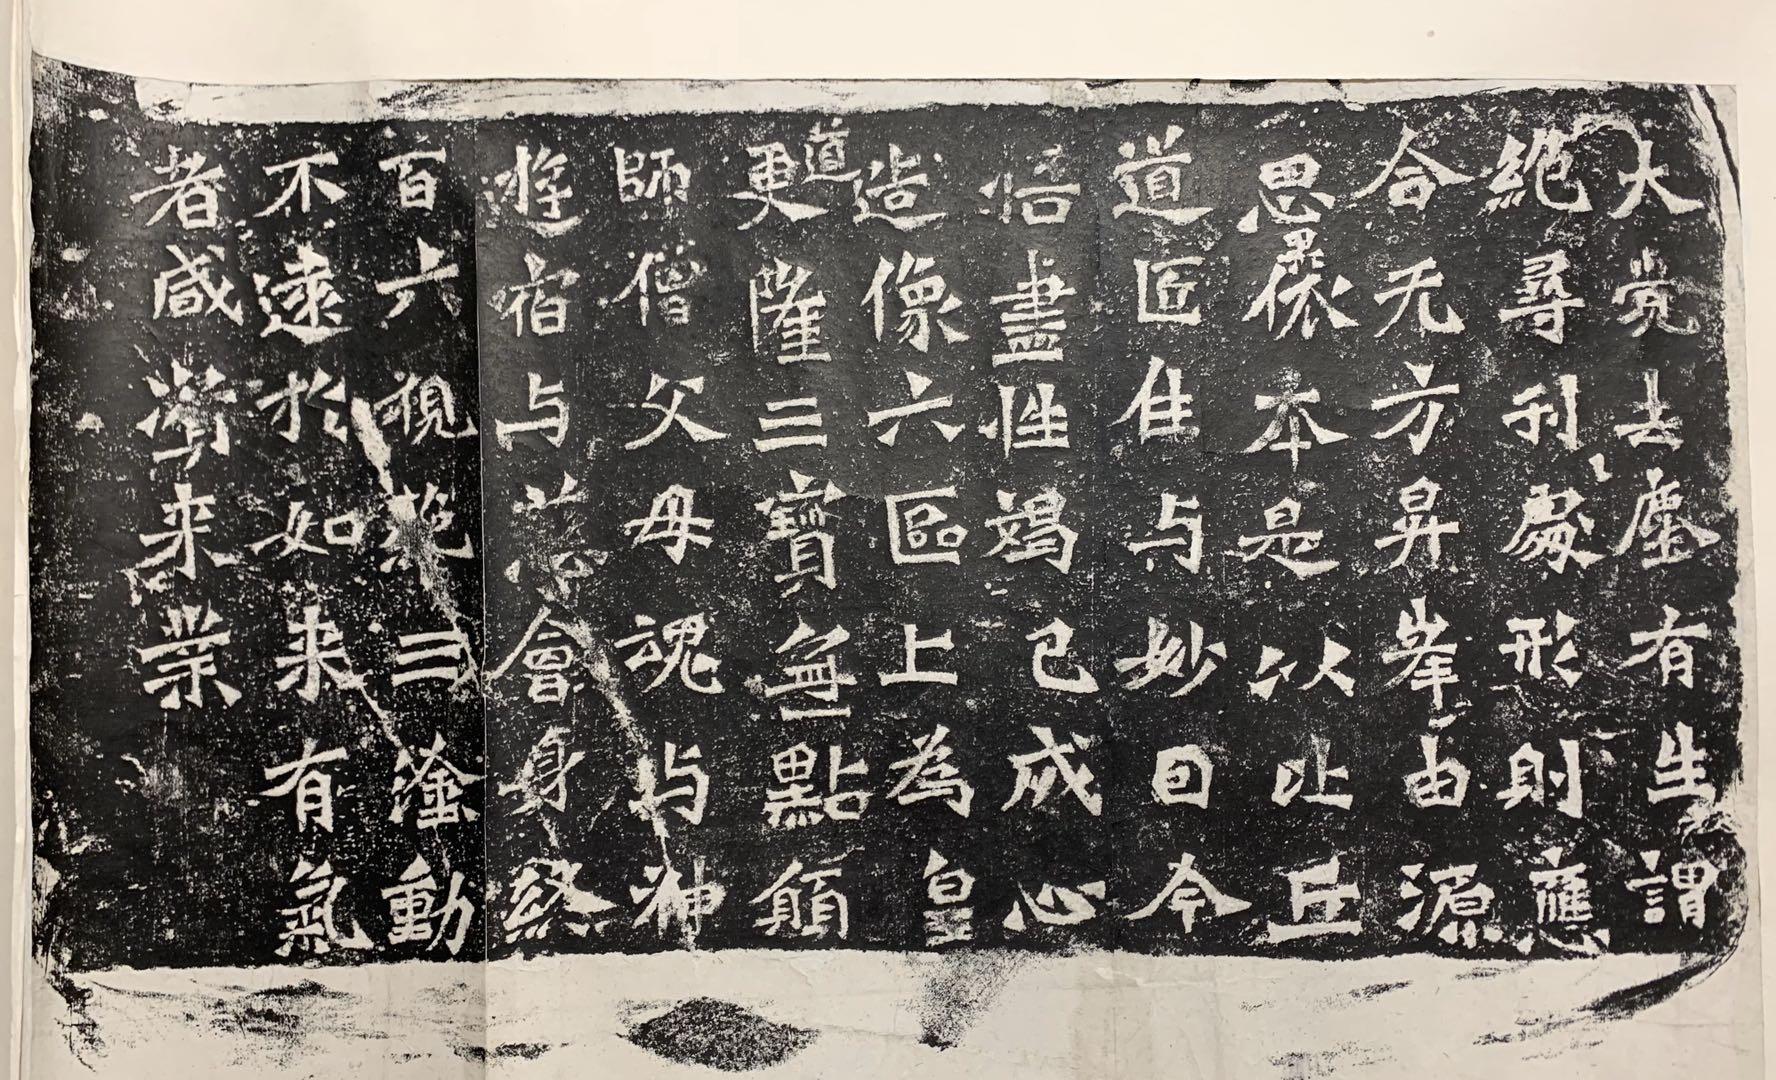 大覺去塵有生謂
絶尋刊處形則應
合无方昇峯由源
思本是以比丘
道匠住与妙因今
悟盡性竭己成心
造像六區上為皇
道更隆三寶無點願
師僧父母魂与神
遊宿与慈會身終
百六視三塗動
不遠於如来有氣
者咸勞来業